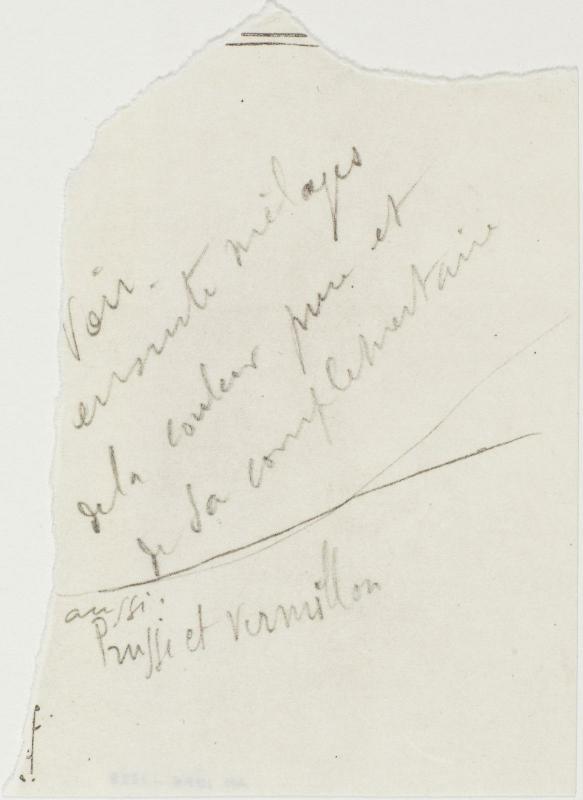 Voir.
ensuite mélages
de la couleur pure et
de sa complémentaire
aussi.
Prusse et Vermillon